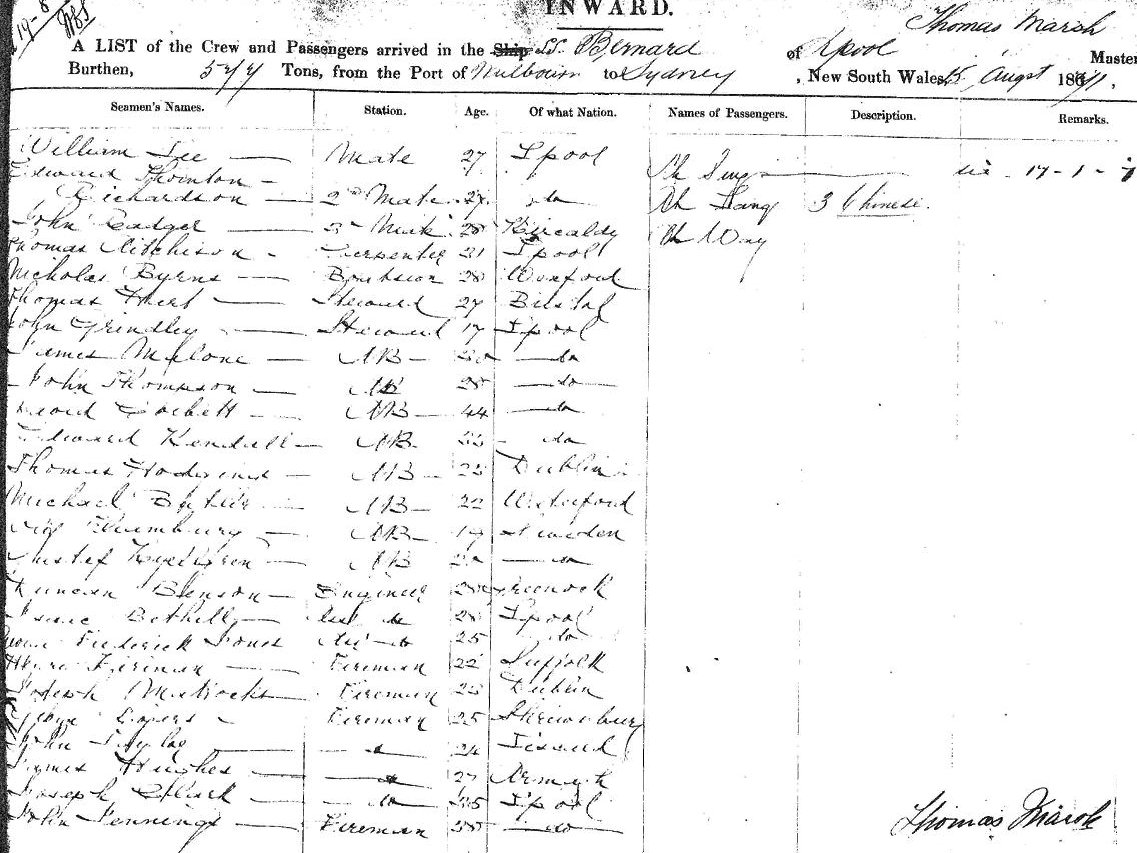 INWARD.
Thomas Marsh
A LIST of the Crew and Passengers arrived in the Ship SS. Bernard of Lpool Master
Burthen, Tons, from the Port of Melbourn to Sydney, New South Wales, 15 Augst 1871,
Seamen's Names. Station. Age. Of what Nation. Names of Passengers. Description. Remarks.
William Lee — Mate 27 Lpool Ah Sing
Edward Thornton
Richardson — 2nd Mate 27 do Ah Hang 3 Chinese.
John Cadger — 3rd Mate 28 Kircaldy Ah Way
Thomas Aitchison - Carpenter 21 Lpool
Nicholas Byrne — Boatswn 28 Wexford
Thomas — Steward 27 Bristol
John Grindley — Steward 17 Lpool
James Malone — AB — do
John Thompson — AB 28 — do
Corbett — AB — 44 — do
Edward Kendall — AB 22 - do
Thomas — AB — 22 Dublin
Michael Butler — AB — 22 Waterford
AB — 19 Sweden
Gustef — AB — do
Duncan Benson — Engineer Greenock
Isaac Bethell — do 28 Lpool
Frederick Jones do 25 do
Henri Fireman — Fireman 22 Suffolk
Joseph — Fireman 23 Dublin
Fireman 25 Shrewsbury
John Taylor — do 24
James Hughes — do 27 Armagh
Joseph Clark — do 35 Lpool
John Jennings — Fireman 38 — do
Thomas Marsh